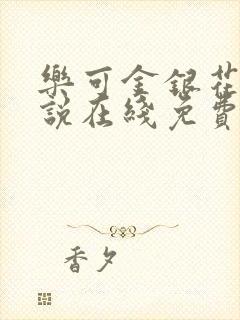 樂可金銀花
說在綫免費
香夕